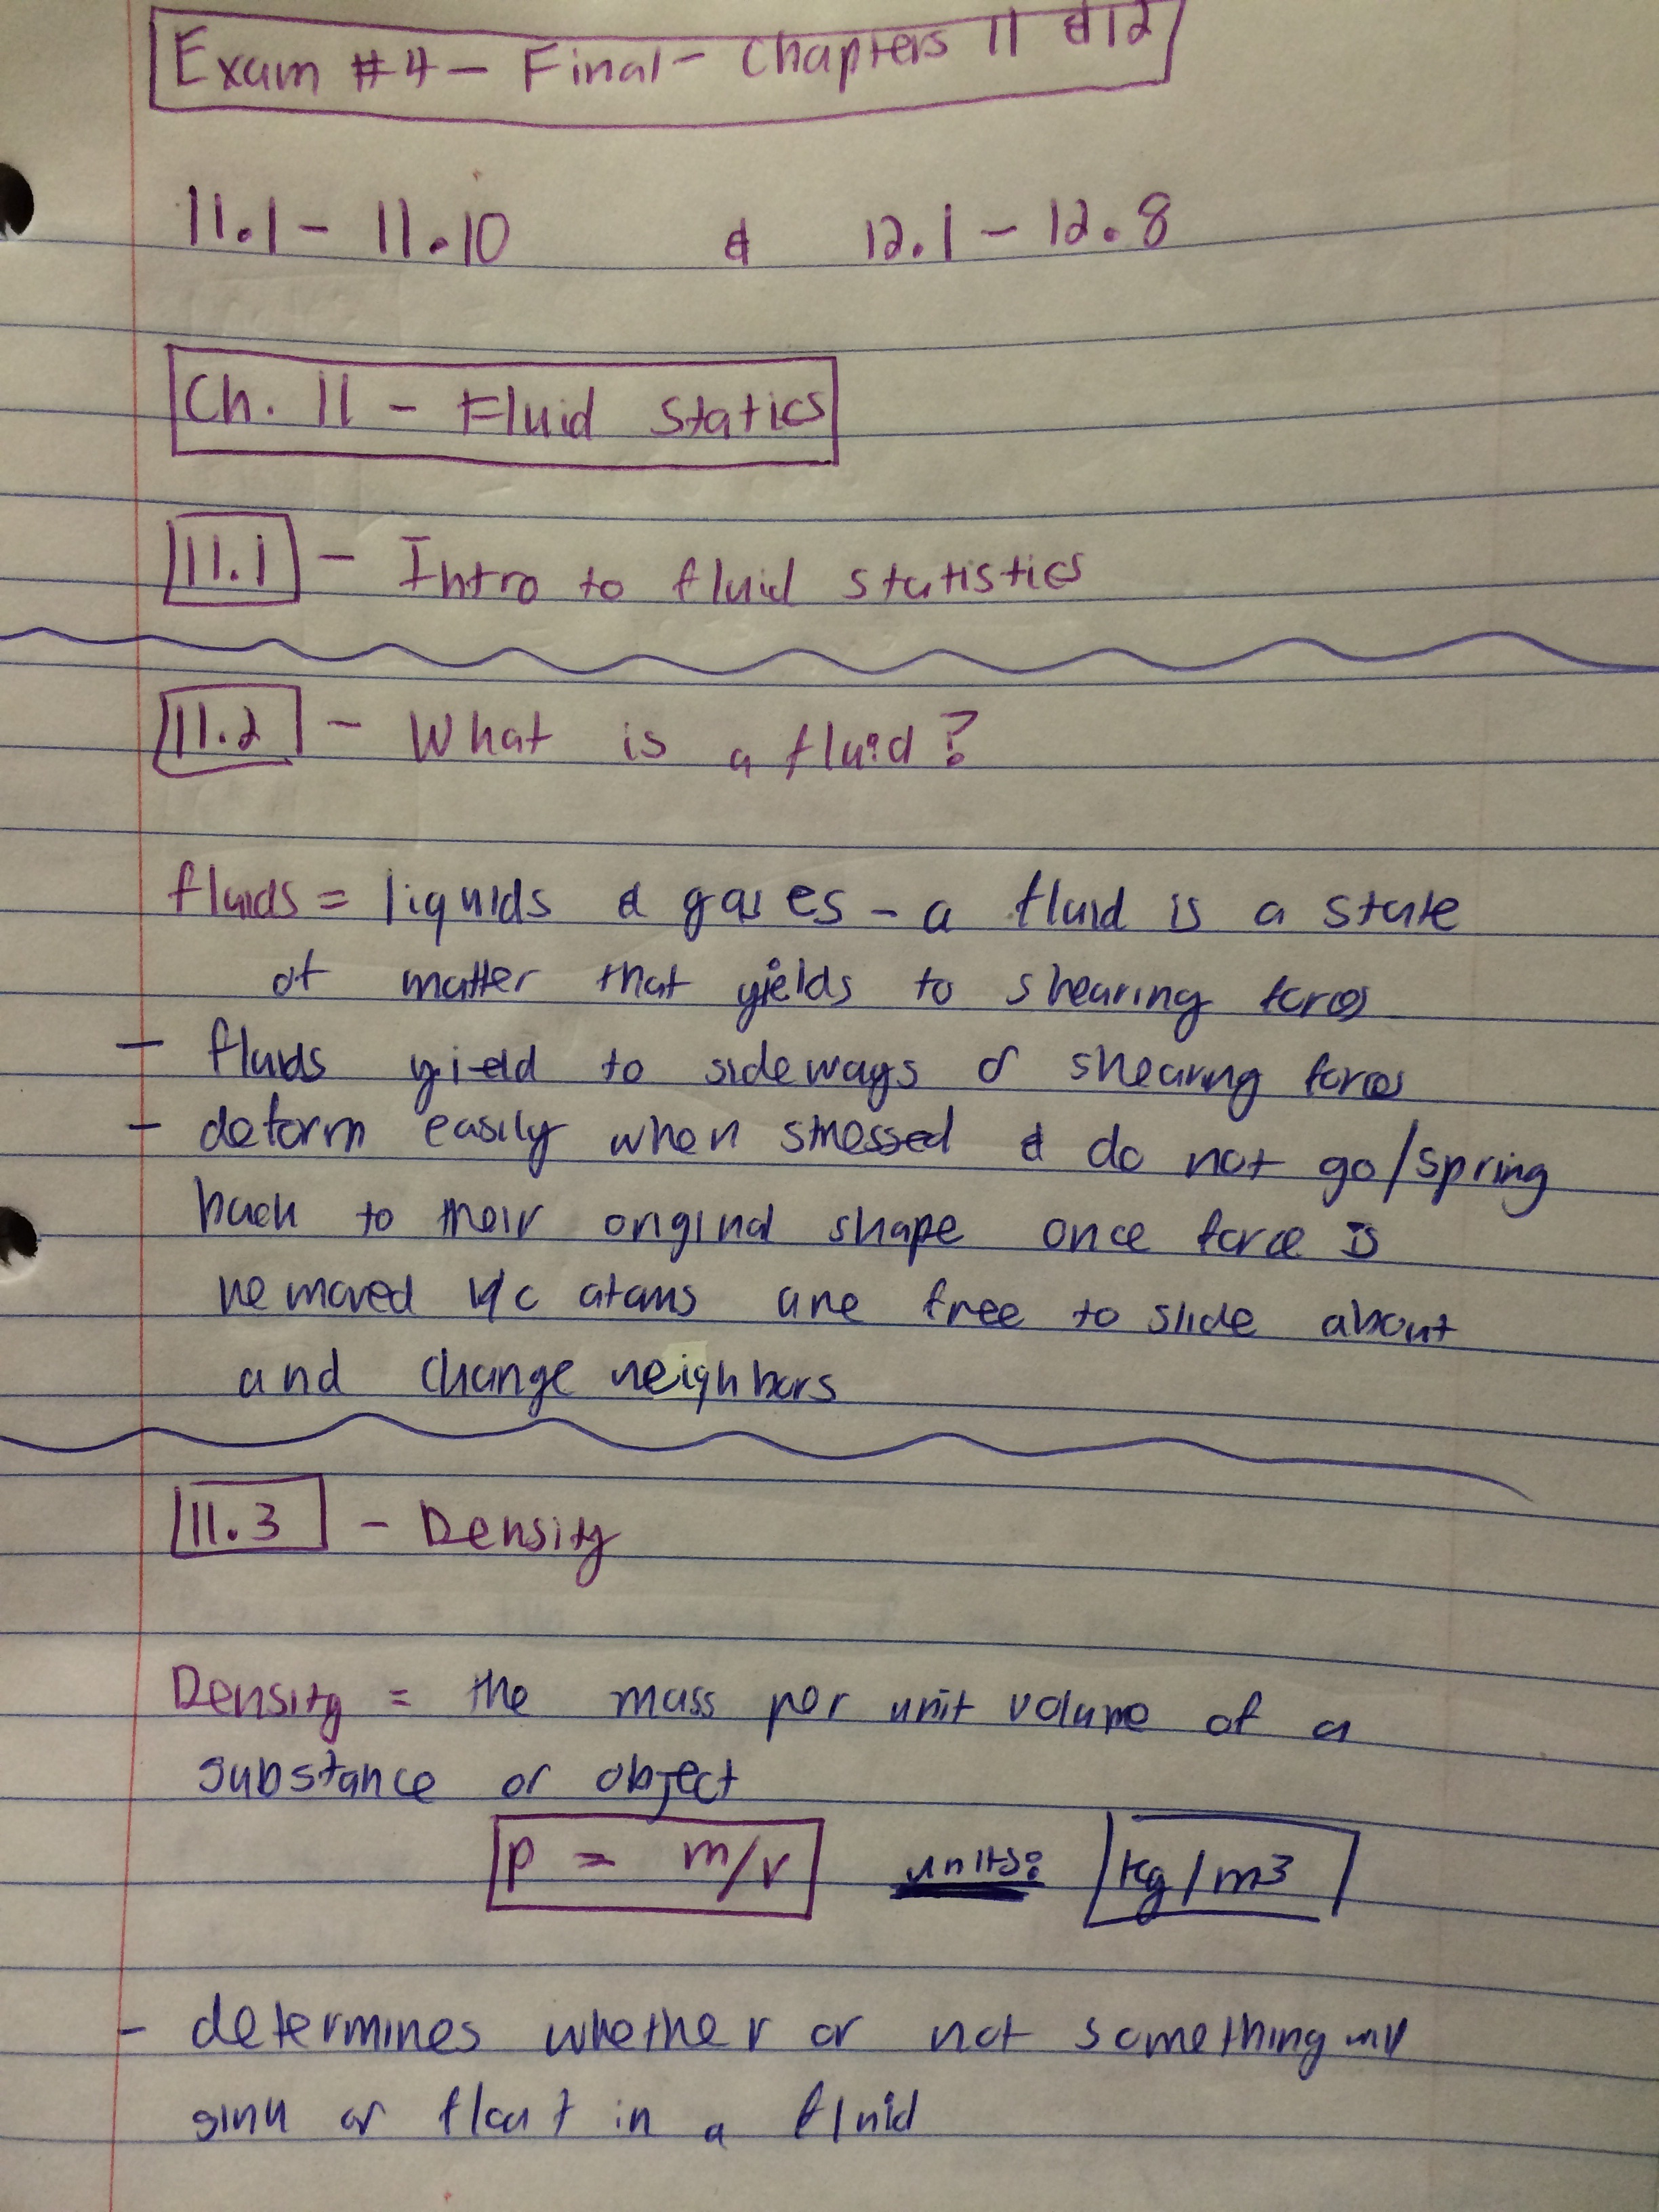 Exam #4 - Final - Chapters 11 & 12
11.1 - 11.10 & 12.1 - 12.8
Ch. 11 - Fluid Statics
11.1 - Intro to fluid statistics
11.2 - What is a fluid?
fluids = liquids & gases - a fluid is a state
of matter that yields to shearing forces
- fluids yield to sideways or shearing forces
- deform easily when stressed & do not go/spring
back to their original shape once force is
removed b/c atoms are free to slide about
and change neighbors
11.3 - Density
Density = the mass per unit volume of a
substance or object
p = m/v units: kg/m3
- determines whether or not something will
sink or float in a fluid